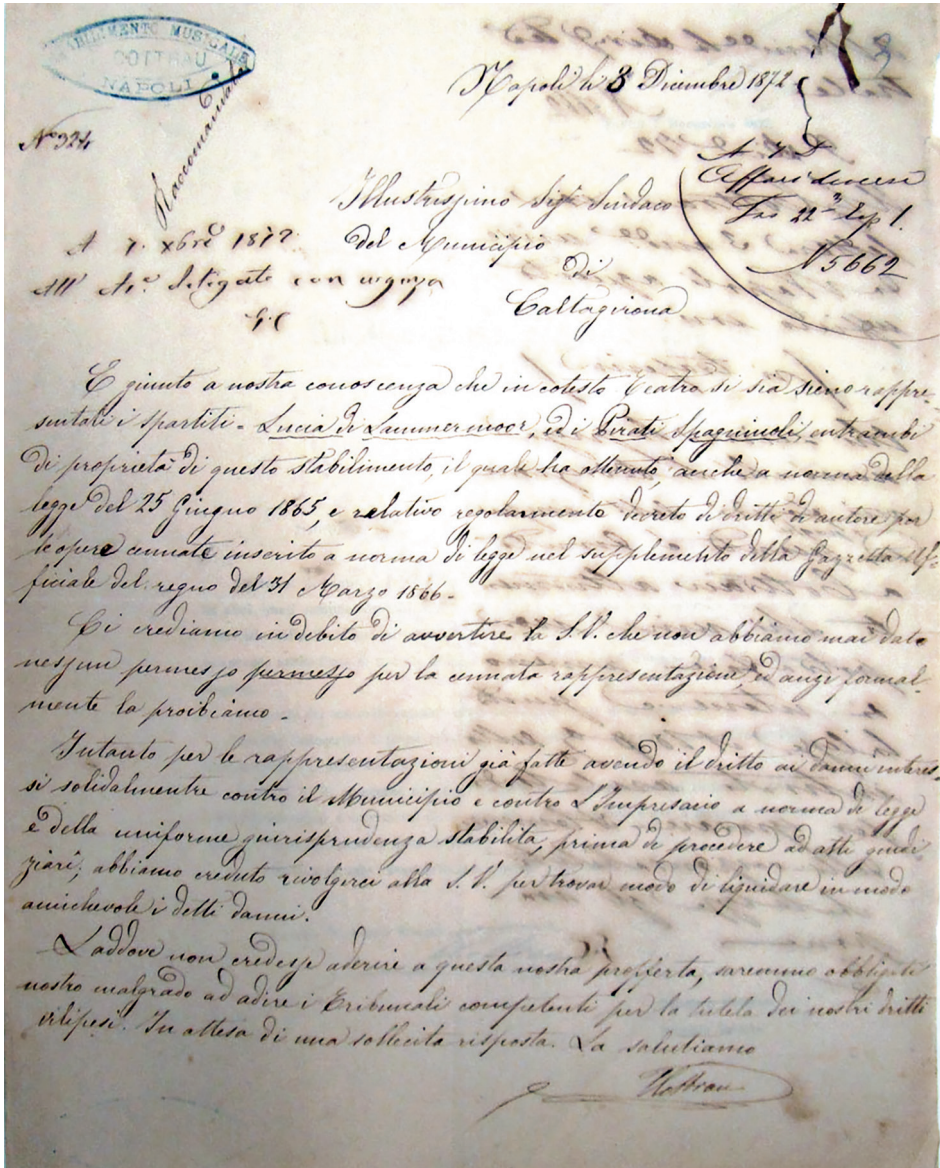 STABILIMENTO MUSICALE
COTTRAU
NAPOLI
Napoli li 3 Dicembre 1872
No 324
Raccomandata
Affari diversi
N 5662
Illustrissimo Sigr Sindaco
del Municipio
di
Caltagirona
A 7. xbre 1872
All' Delegato con urgenza
E giunto a nostra conoscenza che in cotesto Teatro si sia sieno rappre-
sentati i spartiti = Lucia di Lammermoor, ed i Pirati Spagnuoli, entrambi
di proprietà di questo stabilimento, il quale ha ottenuto, anche a norma della
legge del 25 Giugno 1865, e relativo regolamento decreto di dritti di autore per
le opere cennate inserito a norma di legge nel supplemento della Gazzetta Uf-
ficiale del regno del 31 Marzo 1866 -
Ci crediamo in debito di avvertire la S.V. che non abbiamo mai dato
nessun permesso permesso per la cennata rappresentazione, ed anzi formal-
mente la proibiamo -
Intanto per le rappresentazioni già fatte avendo il dritto ai danni interes-
si solidalmentre contro il Municipio e contro L'Impresario a norma di legge
e della uniforme guirisprudenza stabilita, prima di procedere ad atti giudi
ziari; abbiamo creduto rivolgerci alla S.V. per trovar modo di liquidare in modo
amichevole i detti danni.
Laddove non credesse aderire a questa nostra profferta, saremmo obbligati
nostro malgrado ad adire i Tribunali competenti per la tutela dei nostri dritti
vilipesi. In attesa di una sollecita risposta. La salutiamo
Cottrau